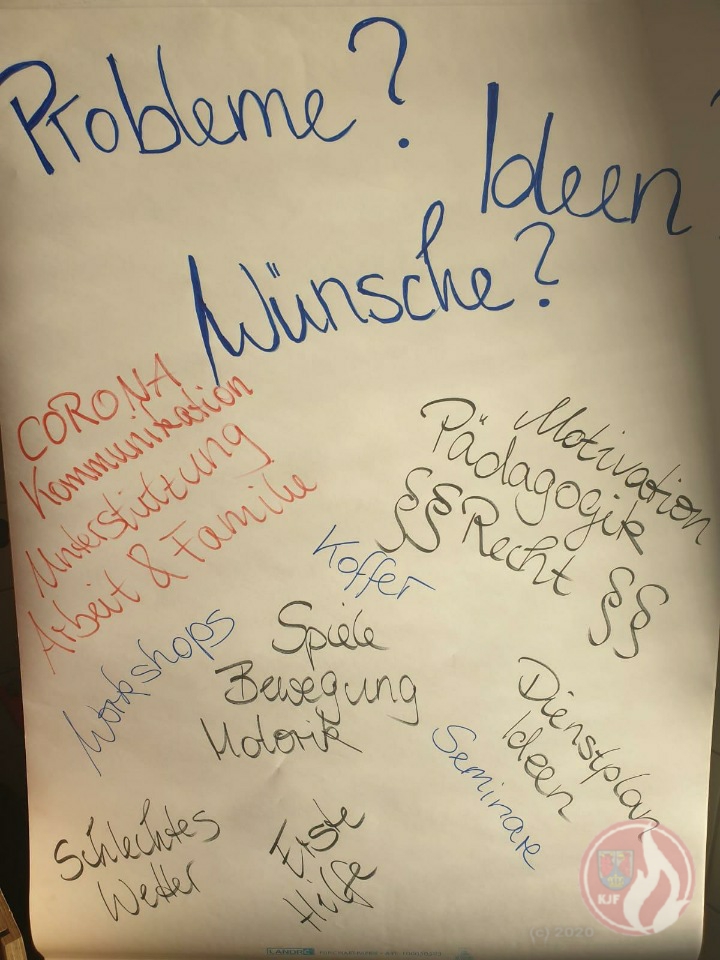 Probleme?
Ideen
Wünsche?
CORONA
Kommunikation
Unterstützung
Arbeit & Familie
Motivation
Pädagogik
§§ Recht §§
Koffer
Workshops
Spiele
Bewegung
Motorik
Dienstplan
Ideen
Seminare
Schlechtes
Wetter
Erste
Hilfe
KJF
(c) 2020